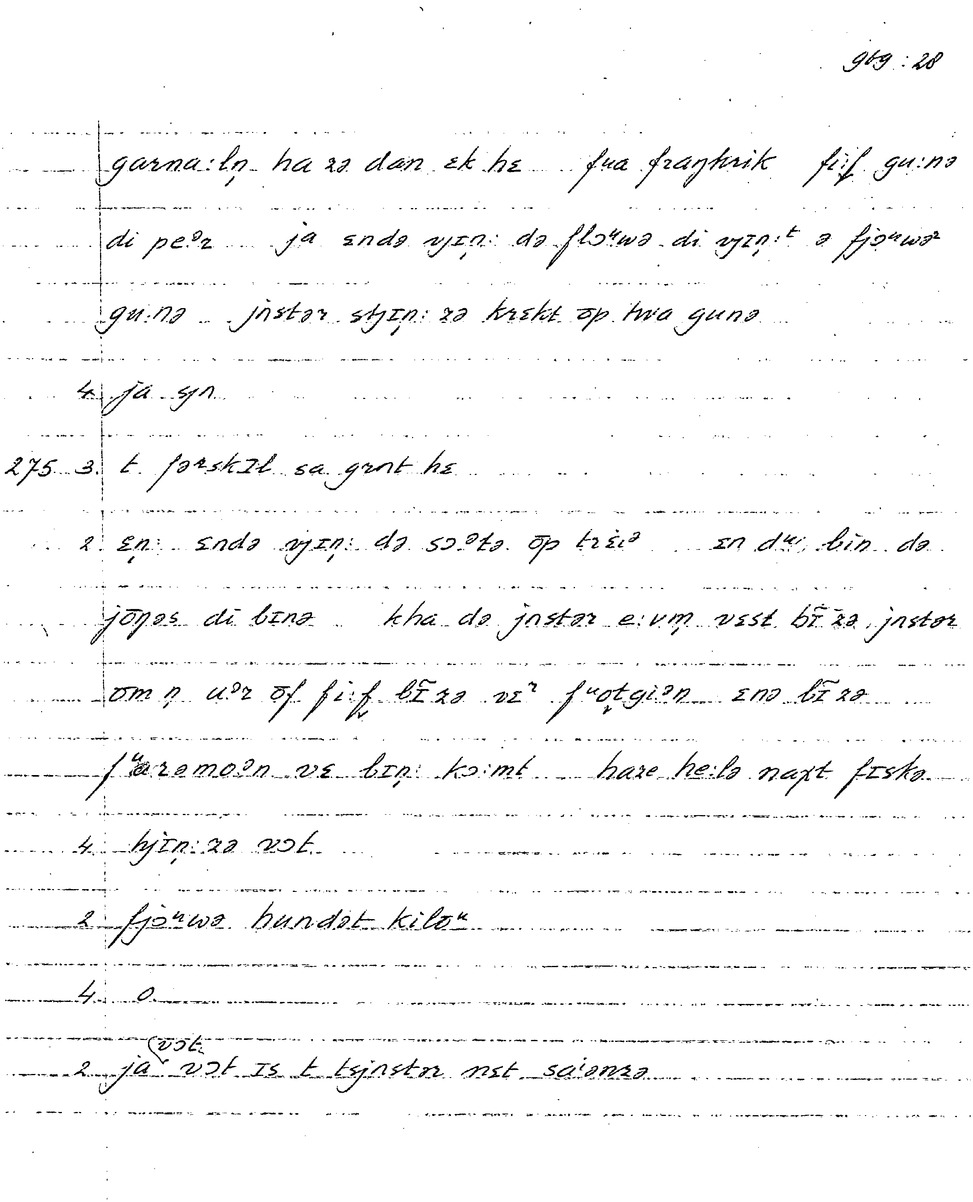 969 : 28
garna:lṇ ha zə dan ɛk hɛ fua fraŋkrik fi:f gu:nə
di peᵊr ja ɛndə vjɪṇ: də flɔᵘwə di vjɪṇ:ᵗ ə fjɔᵘwəʳ
gu:nə jʌstər stjɪṇ: zə krɛkt o̅p twa gunə
4 ja sjʌ
275 3. t fəʳskɪl sa grʌt hɛ
2 ɛṇ: ɛndə vjɪṇ: də sɔᵊtə o̅p trɛiə ɪn dᵘ bin də
jo̅ŋəs di bɪnə kha də jʌstər e:vm̩ vɛst bɪ̅zə jʌstər
o̅m ṇ uᵊr o̅f fi:f bɪ̅zə vɛʳ fᵘotgiᵊn ɛnə bɪ̅zə
fᵘarəmoᵊn vɛ bɪṇ: kɔ:mt haze he:lə naχt fɪskə
4 hjɪṇ: zə vɔt
2 fjɔᵘwə hundət kiloᵘ
4 o
(vɔt
2 ja vɔt ɪs t tsjʌstər nɛt saⁱənzə